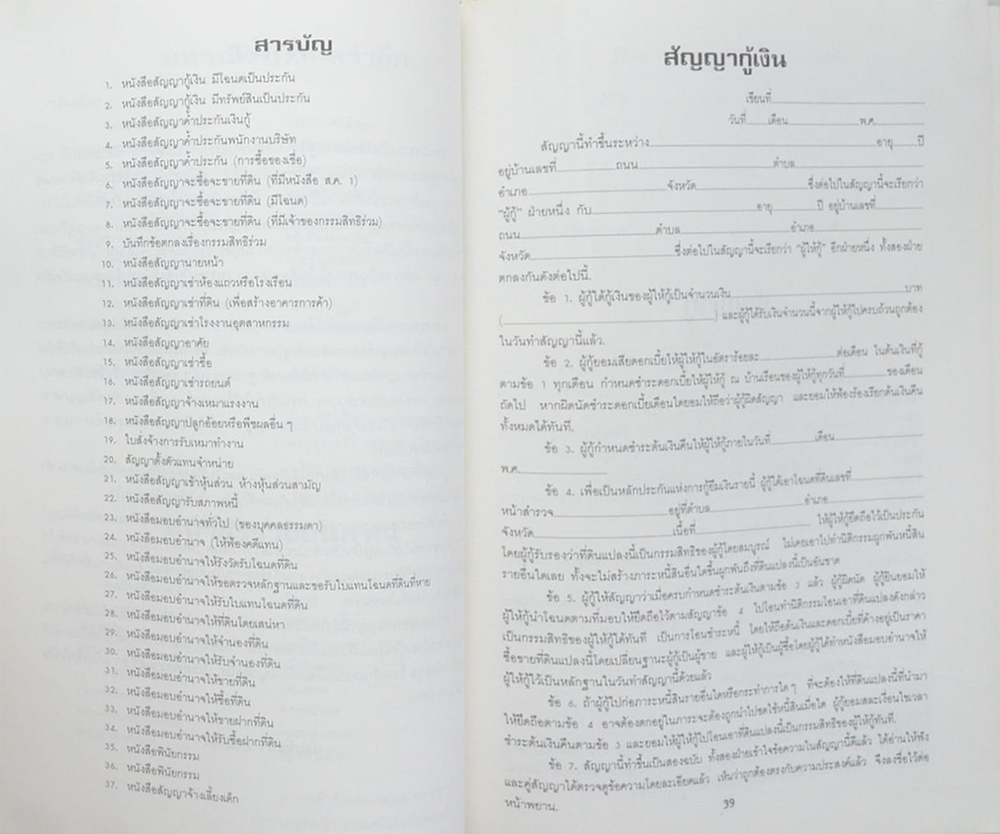 สารบัญ
1. หนังสือสัญญากู้เงิน มีโฉนดเป็นประกัน
2. หนังสือสัญญากู้เงิน มีทรัพย์สินเป็นประกัน
3. หนังสือสัญญาค้ำประกันเงินกู้
4. หนังสือสัญญาค้ำประกันพนักงานบริษัท
5. หนังสือสัญญาค้ำประกัน (การซื้อของเชื่อ)
6. หนังสือสัญญาจะซื้อจะขายที่ดิน (ที่มีหนังสือ ส.ค. 1)
7. หนังสือสัญญาจะซื้อจะขายที่ดิน (มีโฉนด)
8. หนังสือสัญญาจะซื้อจะขายที่ดิน (ที่มีเจ้าของกรรมสิทธิร่วม)
9. บันทึกข้อตกลงเรื่องกรรมสิทธิร่วม
10. หนังสือสัญญานายหน้า
11. หนังสือสัญญาเช่าห้องแถวหรือโรงเรือน
12. หนังสือสัญญาเช่าที่ดิน (เพื่อสร้างอาคารการค้า)
13. หนังสือสัญญาเช่าโรงงานอุตสาหกรรม
14. หนังสือสัญญาอาศัย
15. หนังสือสัญญาเช่าซื้อ
16. หนังสือสัญญาเช่ารถยนต์
17. หนังสือสัญญาจ้างเหมาแรงงาน
18. หนังสือสัญญาปลูกอ้อยหรือพืชผลอื่น ๆ
19. ใบสั่งจ้างการรับเหมาทำงาน
20. สัญญาตั้งตัวแทนจำหน่าย
21. หนังสือสัญญาเข้าหุ้นส่วน ห้างหุ้นส่วนสามัญ
22. หนังสือสัญญารับสภาพหนี้
23. หนังสือมอบอำนาจทั่วไป (ของบุคคลธรรมดา)
24. หนังสือมอบอำนาจ (ให้ฟ้องคดีแทน)
25. หนังสือมอบอำนาจให้รังวัดรับโฉนดที่ดิน
26. หนังสือมอบอำนาจให้ขอตรวจหลักฐานและขอรับใบแทนโฉนดที่ดินที่หาย
27. หนังสือมอบอำนาจให้รับใบแทนโฉนดที่ดิน
28. หนังสือมอบอำนาจให้ที่ดินโดยเสน่หา
29. หนังสือมอบอำนาจให้จำนองที่ดิน
30. หนังสือมอบอำนาจให้รับจำนองที่ดิน
31. หนังสือมอบอำนาจให้ขายที่ดิน
32. หนังสือมอบอำนาจให้ซื้อที่ดิน
33. หนังสือมอบอำนาจให้ขายฝากที่ดิน
34. หนังสือมอบอำนาจให้รับซื้อฝากที่ดิน
35. หนังสือพินัยกรรม
36. หนังสือพินัยกรรม
37. หนังสือสัญญาจ้างเลี้ยงเด็ก
สัญญากู้เงิน
เขียนที่
วันที่ เดือน พ.ศ.
สัญญานี้ทำขึ้นระหว่าง อายุ ปี
อยู่บ้านเลขที่ ถนน ตำบล
อำเภอ จังหวัด ซึ่งต่อไปในสัญญานี้จะเรียกว่า
"ผู้กู้" ฝ่ายหนึ่ง กับ อายุ ปี อยู่บ้านเลขที่
ถนน ตำบล อำเภอ
จังหวัด ซึ่งต่อไปในสัญญานี้จะเรียกว่า "ผู้ให้กู้" อีกฝ่ายหนึ่ง ทั้งสองฝ่าย
ตกลงกันดังต่อไปนี้.
ข้อ 1. ผู้กู้ได้กู้เงินของผู้ให้กู้เป็นจำนวนเงิน บาท
( ) และผู้กู้ได้รับเงินจำนวนนี้จากผู้ให้กู้ไปครบถ้วนถูกต้อง
ในวันทำสัญญานี้แล้ว.
ข้อ 2. ผู้กู้ยอมเสียดอกเบี้ยให้ผู้ให้กู้ในอัตราร้อยละ ต่อเดือน ในต้นเงินที่กู้
ตามข้อ 1 ทุกเดือน กำหนดชำระดอกเบี้ยให้ผู้ให้กู้ ณ บ้านเรือนของผู้ให้กู้ทุกวันที่ ของเดือน
ถัดไป หากผิดนัดชำระดอกเบี้ยเดือนใดยอมให้ถือว่าผู้กู้ผิดสัญญา และยอมให้ฟ้องร้องเรียกต้นเงินคืน
ทั้งหมดได้ทันที.
ข้อ 3. ผู้กู้กำหนดชำระต้นเงินคืนให้ผู้ให้กู้ภายในวันที่ เดือน
พ.ศ.
ข้อ 4. เพื่อเป็นหลักประกันแห่งการกู้ยืมเงินรายนี้ ผู้กู้ได้เอาโฉนดที่ดินเลขที่
หน้าสำรวจ อยู่ที่ตำบล อำเภอ
จังหวัด เนื้อที่ ให้ผู้ให้กู้ยึดถือไว้เป็นประกัน
โดยผู้กู้รับรองว่าที่ดินแปลงนี้เป็นกรรมสิทธิของผู้กู้โดยสมบูรณ์ ไม่เคยเอาไปทำนิติกรรมผูกพันหนี้สิน
รายอื่นใดเลย ทั้งจะไม่สร้างภาระหนี้สินอื่นใดขึ้นผูกพันถึงที่ดินแปลงนี้เป็นอันขาด
ข้อ 5. ผู้กู้ให้สัญญาว่าเมื่อครบกำหนดชำระต้นเงินตามข้อ 3 แล้ว ผู้กู้ผิดนัด ผู้กู้ยินยอมให้
ผู้ให้กู้นำโฉนดตามที่มอบให้ยึดถือไว้ตามสัญญาข้อ 4 ไปโอนทำนิติกรรมโอนเอาที่ดินแปลงดังกล่าว
เป็นกรรมสิทธิของผู้ให้กู้ได้ทันที เป็นการโอนชำระหนี้ โดยให้ถือต้นเงินและดอกเบี้ยที่ค้างอยู่เป็นราคา
ซื้อขายที่ดินแปลงนี้โดยเปลี่ยนฐานะผู้กู้เป็นผู้ขาย และผู้ให้กู้เป็นผู้ซื้อโดยผู้กู้ได้ทำหนังสือมอบอำนาจให้
ผู้ให้กู้ไว้เป็นหลักฐานในวันทำสัญญานี้ด้วยแล้ว
ข้อ 6. ถ้าผู้กู้ไปก่อภาระหนี้สินรายอื่นใดหรือกระทำการใด ๆ ที่จะต้องให้ที่ดินแปลงนี้ที่นำมา
ให้ยึดถือตามข้อ 4 อาจต้องตกอยู่ในภาระจะต้องถูกนำไปชดใช้หนี้สินเมื่อใด ผู้กู้ยอมสละเงื่อนไขเวลา
ชำระต้นเงินคืนตามข้อ 3 และยอมให้ผู้ให้กู้ไปโอนเอาที่ดินแปลงนี้เป็นกรรมสิทธิของผู้ให้กู้ทันที.
ข้อ 7. สัญญานี้ทำขึ้นเป็นสองฉบับ ทั้งสองฝ่ายเข้าใจข้อความในสัญญานี้ดีแล้ว ได้อ่านให้ฟัง
และคู่สัญญาได้ตรวจดูข้อความโดยละเอียดแล้ว เห็นว่าถูกต้องตรงกับความประสงค์แล้ว จึงลงชื่อไว้ต่อ
หน้าพยาน.
39